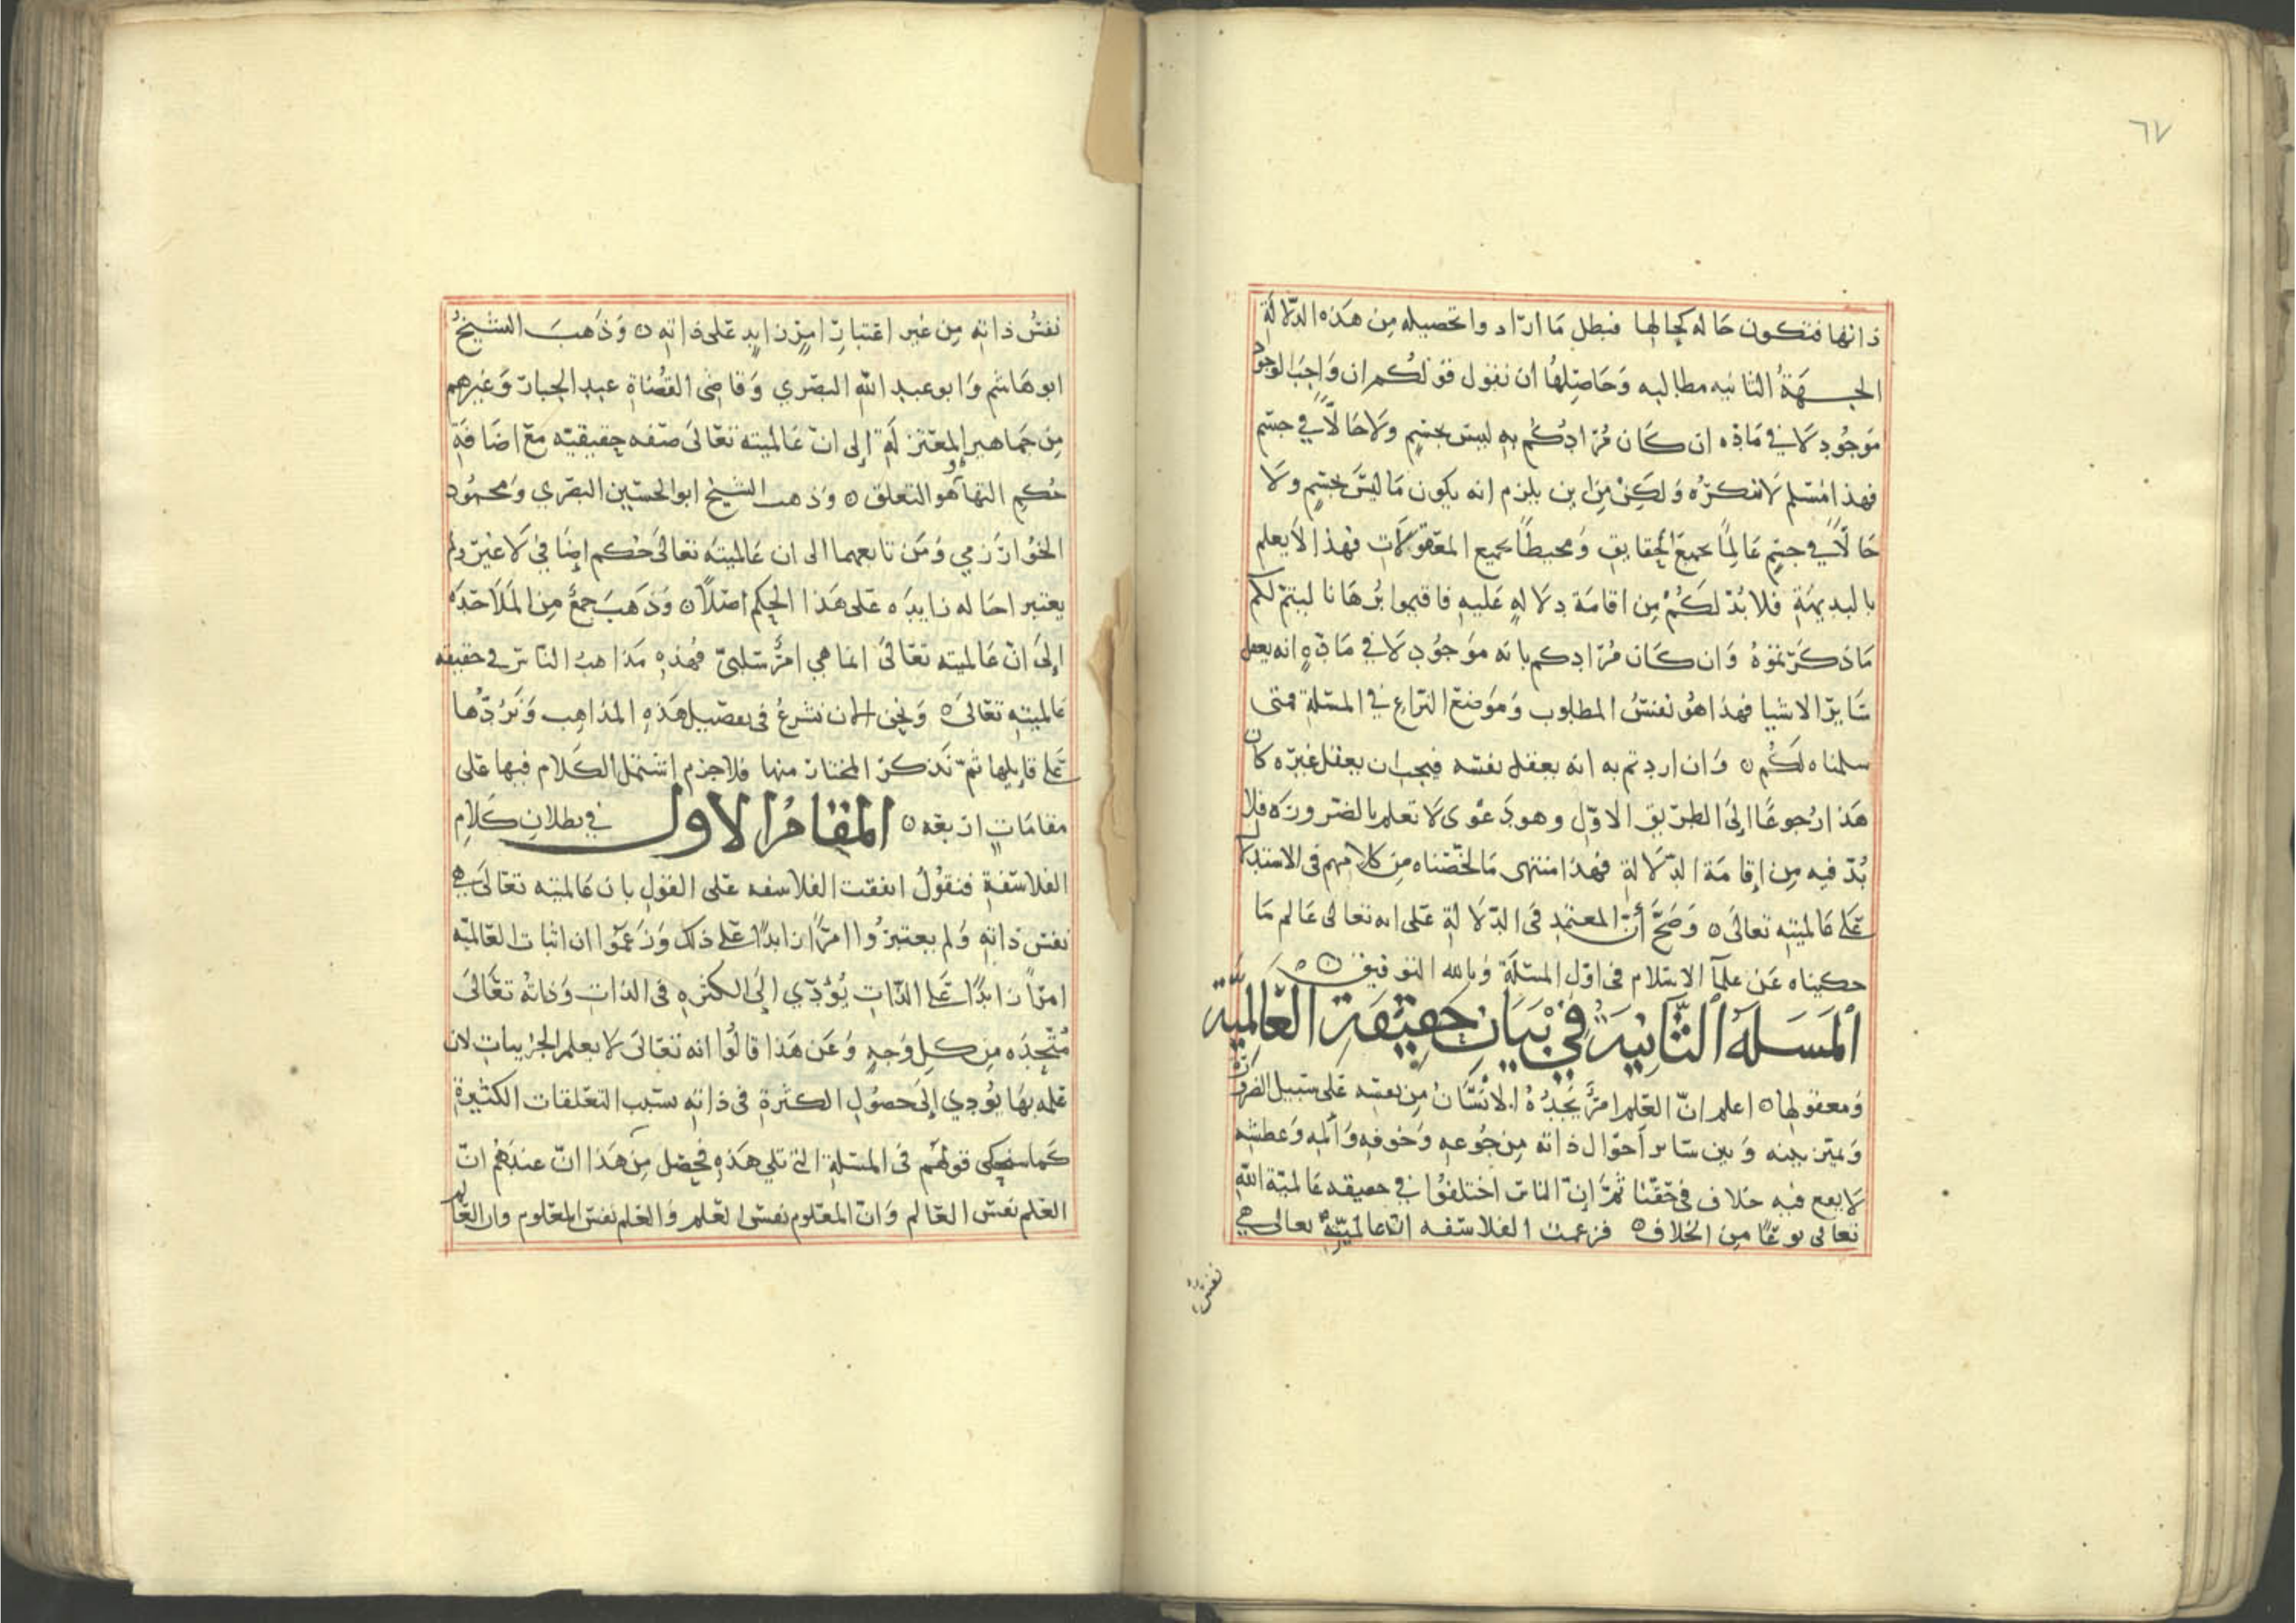 ٦٧
ذاتها فتكون حاله كحالها فبطل ما اراد واتحصيله من هذه الدلالة
الجهة الثانيه مطالبه وحاصلها ان نقول قولكم ان واجب الوجود
موجود لا في ماده ان كان مرادكم به ليس بجسم ولا حالاً في جسم
فهذا مسلم لا ننكره ولكن من اين يلزم انه يكون ما ليس بجسم ولا
حالاً في جسم عالماً بجميع الحقايق ومحيطاً بجميع المعقولات فهذا لا يعلم
بالبديهة فلا بد لكم من اقامة دلاله عليه فاقيموا برهانا ليتم لكم
ما ذكرتموه وان كان مرادكم بانه موجود لا في مادة انه يعقل
سائر الاشيا فهذا هو نفس المطلوب وموضع النزاع في المسئلة فمتى
سلمناه لكم ٥ وان اردتم به انه يعقل نفسه فيجب ان يعقل غيره كان
هذا رجوعًا الى الطريق الاول وهو دعوى لا تعلم بالضروره فلا
بد فيه من اقامة الدلالة فهذا منتهى ما لخصناه من كلامهم في الاستدلال
على عالميته تعالى ٥ وصح أن المعتمد في الدلالة على انه تعالى عالم ما
حكيناه عن علمآ الاسلام في اول المسئلة وبالله التوفيق ٥
المسله الثانية في بيان حقيقة العالمية
ومعقولها ٥ اعلم ان العلم امر يجده الانسان من نفسه على سبيل الضرورة
ويميز بينه وبين سائر احوال ذاته من جوعه وخوفه وألمه وعطشه
لا يقع فيه خلاف في حقنا ثم إن الناس اختلفوا في حقيقه عالمية الله
تعالى نوعًا من الخلاف ٥ فزعمت الفلاسفه ان عالميته تعالى هي
نفس
نفس ذاته من غير اعتبار امر زايد على ذاته ٥ وذهب الشيخ
ابو هاشم وابو عبد الله البصري وقاضى القضاة عبد الجبار وغيرهم
من جماهير المعتزلة إلى ان عالميته تعالى صفه حقيقيه مع اضافة
حكم اليها وهو التعلق ٥ وذهب الشيخ ابو الحسين البصري ومحمود
الخوارزمي ومن تابعهما الى ان عالميته تعالى حكم إضافي لا غير ولم
يعتبر احاله زايده على هذا الحكم اصلاً ٥ وذهب جمع من الملاحده
إلى ان عالميته تعالى انما هي امر سلبي فهذه مذاهب الناس في حقيقه
عالميته تعالى ٥ ونحن الان نشرع في تفصيل هذه المذاهب ونردها
على قايلها ثم نذكر المختار منها فلا جرم اشتمل الكلام فيها على
مقامات اربعه ٥ المقام الاول في بطلان كلام
الفلاسفة فنقول اتفقت الفلاسفه على القول بان عالميته تعالى هي
نفس ذاته ولم يعتبروا امرًا زايدًا على ذلك وزعموا ان اثبات العالميه
امرًا زايدًا على الذات يؤدي إلى الكثره في الذات وذاته تعالى
متحده من كل وجه وعن هذا قالوا انه تعالى لا يعلم الجزييات لان
علمه بها يؤدي إلى حصول الكثرة في ذاته بسبب التعلقات الكثيرة
كما سنحكى قولهم في المسئلة التى تلي هذه فحصل من هذا ان عندهم ان
العلم نفس العالم وان المعلوم نفس العلم والعلم نفس المعلوم وان العالم